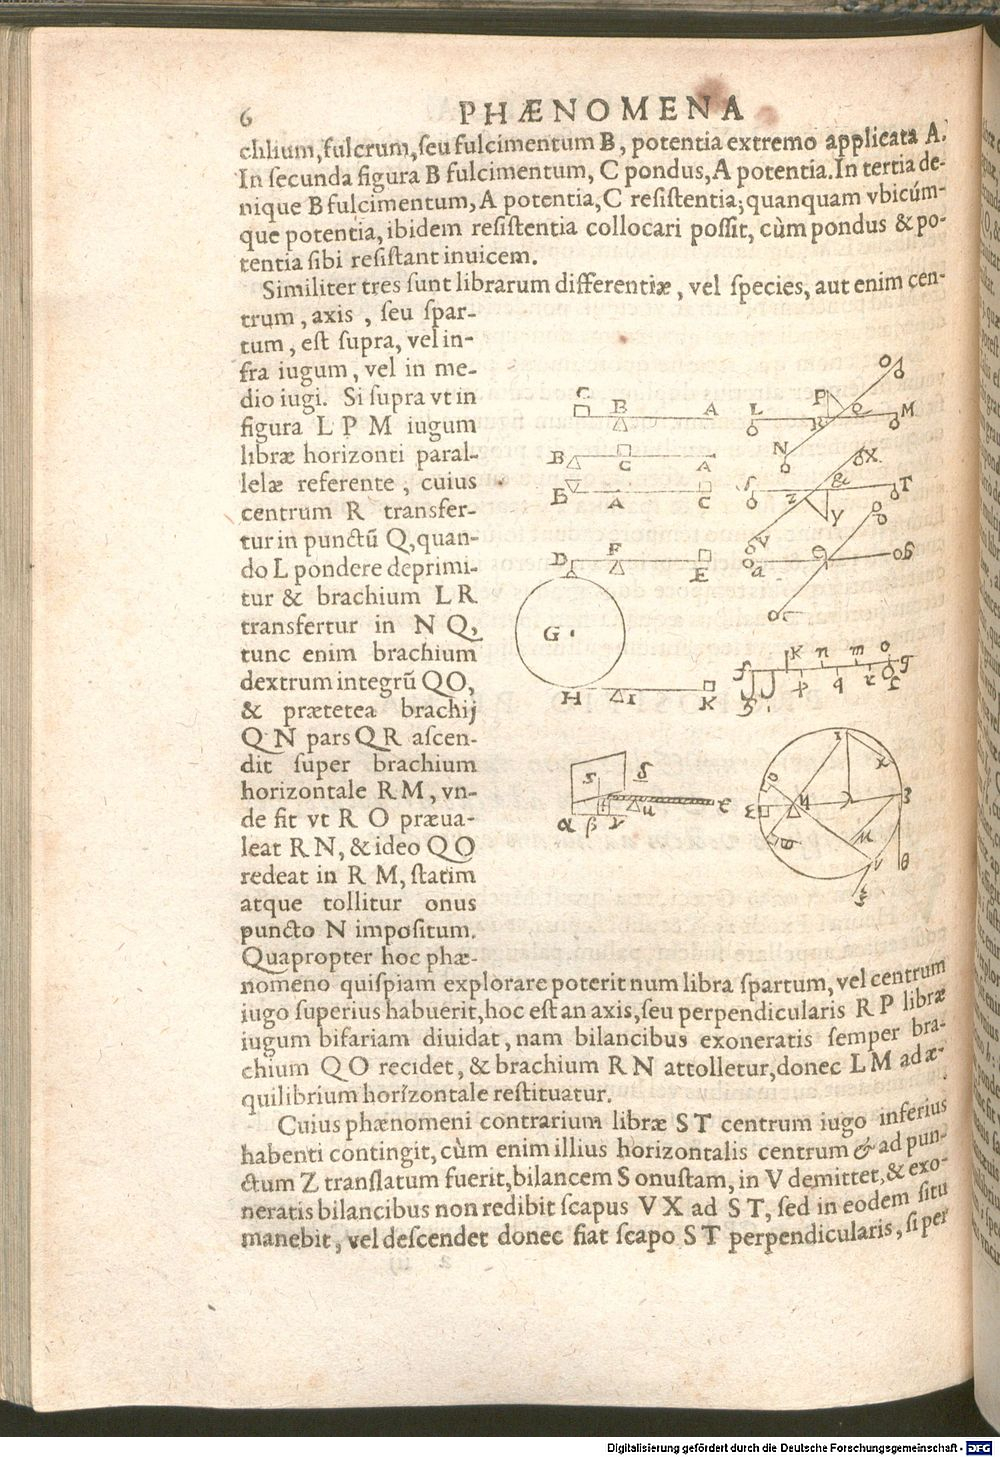 6 PHÆNOMENA
chlium, fulcrum, seu fulcimentum B, potentia extremo applicata A.
In secunda figura B fulcimentum, C pondus, A potentia. In tertia de-
nique B fulcimentum, A potentia, C resistentia; quanquam vbicúm-
que potentia, ibidem resistentia collocari possit, cùm pondus & po-
tentia sibi resistant inuicem.
Similiter tres sunt librarum differentiæ, vel species, aut enim cen-
trum, axis, seu spar-
tum, est supra, vel in-
fra iugum, vel in me-
dio iugi. Si supra vt in
figura L P M iugum
libræ horizonti paral-
lelæ referente, cuius
centrum R transfer-
tur in punctũ Q, quan-
do L pondere deprimi-
tur & brachium L R
transfertur in N Q,
tunc enim brachium
dextrum integrũ QO,
& prætetea brachij
Q N pars QR ascen-
dit super brachium
horizontale R M, vn-
de fit vt R O præua-
leat R N, & ideo QO
redeat in R M, statim
atque tollitur onus
puncto N impositum.
Quapropter hoc phæ-
nomeno quispiam explorare poterit num libra spartum, vel centrum
iugo superius habuerit, hoc est an axis, seu perpendicularis R P libræ
iugum bifariam diuidat, nam bilancibus exoneratis semper bra-
chium QO recidet, & brachium R N attolletur, donec L M ad æ-
quilibrium horizontale restituatur.
Cuius phænomeni contrarium libræ S T centrum iugo inferius
habenti contingit, cùm enim illius horizontalis centrum & ad pun-
ctum Z translatum fuerit, bilancem S onustam, in V demittet, & exo-
neratis bilancibus non redibit scapus V X ad S T, sed in eodem situ
manebit, vel descendet donec fiat scapo S T perpendicularis, si per
C B A L P Q M
R
N O
B C A
B A C
S Z & X T
V Y
D F E
a
G
H I K
f K n m o g
p q r
α β γ δ ε
Digitalisierung gefördert durch die Deutsche Forschungsgemeinschaft - DFG